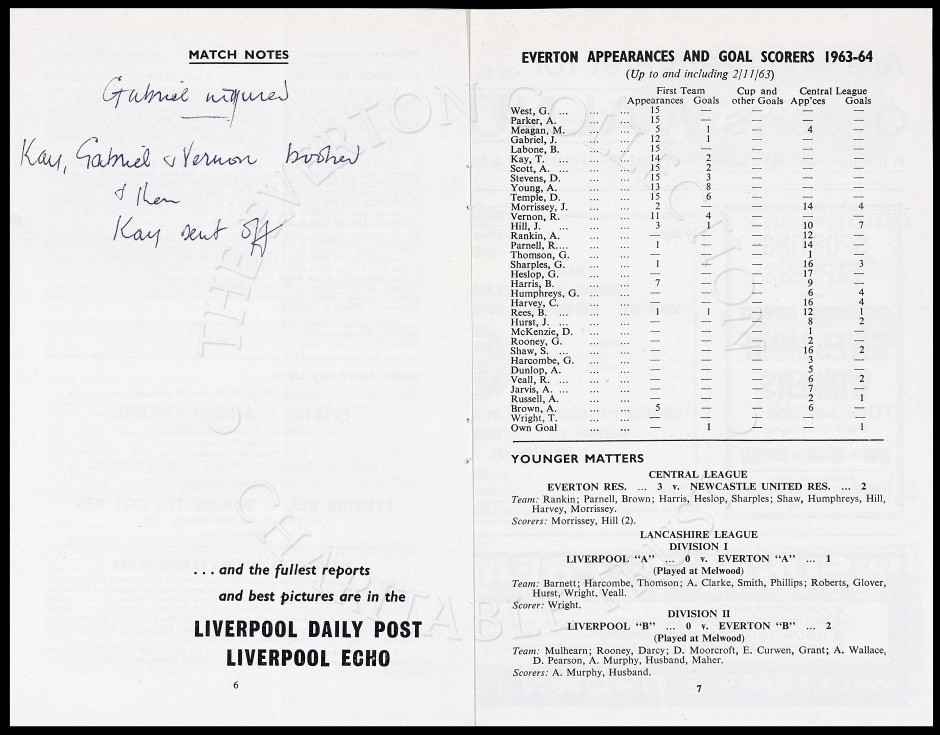 MATCH NOTES
Gabriel injured
Kay, Gabriel & Vernon booked
& then
Kay sent off
... and the fullest reports
and best pictures are in the
LIVERPOOL DAILY POST
LIVERPOOL ECHO
6
EVERTON APPEARANCES AND GOAL SCORERS 1963-64
(Up to and including 2/11/63)
First Team Cup and Central League
Appearances Goals other Goals App'ces Goals
West, G. ... ... ... 15 — — — —
Parker, A. ... ... 15 — — — —
Meagan, M. ... ... 5 1 — 4 —
Gabriel, J. ... ... 12 1 — — —
Labone, B. ... ... 15 — — — —
Kay, T. ... ... 14 2 — — —
Scott, A. ... ... ... 15 2 — — —
Stevens, D. ... ... 15 3 — — —
Young, A. ... ... 13 8 — — —
Temple, D. ... ... 15 6 — — —
Morrissey, J. ... ... 2 — — 14 4
Vernon, R. ... ... 11 4 — — —
Hill, J. ... ... ... 3 1 — 10 7
Rankin, A. ... ... — — — 12 —
Parnell, R.... ... ... 1 — — 14 —
Thomson, G. ... ... — — — 1 —
Sharples, G. ... ... 1 — — 16 3
Heslop, G. ... ... — — — 17 —
Harris, B. ... ... 7 — — 9 —
Humphreys, G. ... ... — — — 6 4
Harvey, C. ... ... — — — 16 4
Rees, B. ... ... ... 1 1 — 12 1
Hurst, J. ... ... ... — — — 8 2
McKenzie, D. ... ... — — — 1 —
Rooney, G. ... ... — — — 2 —
Shaw, S. ... ... ... — — — 16 2
Harcombe, G. ... ... — — — 3 —
Dunlop, A. ... ... — — — 5 —
Veall, R. ... ... ... — — — 6 2
Jarvis, A. ... ... ... — — — 7 —
Russell, A. ... ... — — — 2 1
Brown, A. ... ... 5 — — 6 —
Wright, T. ... ... — — — — —
Own Goal ... ... — 1 — — 1
YOUNGER MATTERS
CENTRAL LEAGUE
EVERTON RES. ... 3 v. NEWCASTLE UNITED RES. ... 2
Team: Rankin; Parnell, Brown; Harris, Heslop, Sharples; Shaw, Humphreys, Hill,
Harvey, Morrissey.
Scorers: Morrissey, Hill (2).
LANCASHIRE LEAGUE
DIVISION I
LIVERPOOL "A" ... 0 v. EVERTON "A" ... 1
(Played at Melwood)
Team: Barnett; Harcombe, Thomson; A. Clarke, Smith, Phillips; Roberts, Glover,
Hurst, Wright, Veall.
Scorer: Wright.
DIVISION II
LIVERPOOL "B" ... 0 v. EVERTON "B" ... 2
(Played at Melwood)
Team: Mulhearn; Rooney, Darcy; D. Moorcroft, E. Curwen, Grant; A. Wallace,
D. Pearson, A. Murphy, Husband, Maher.
Scorers: A. Murphy, Husband.
7
THE EVERTON COLLECTION
CHARITABLE TRUST